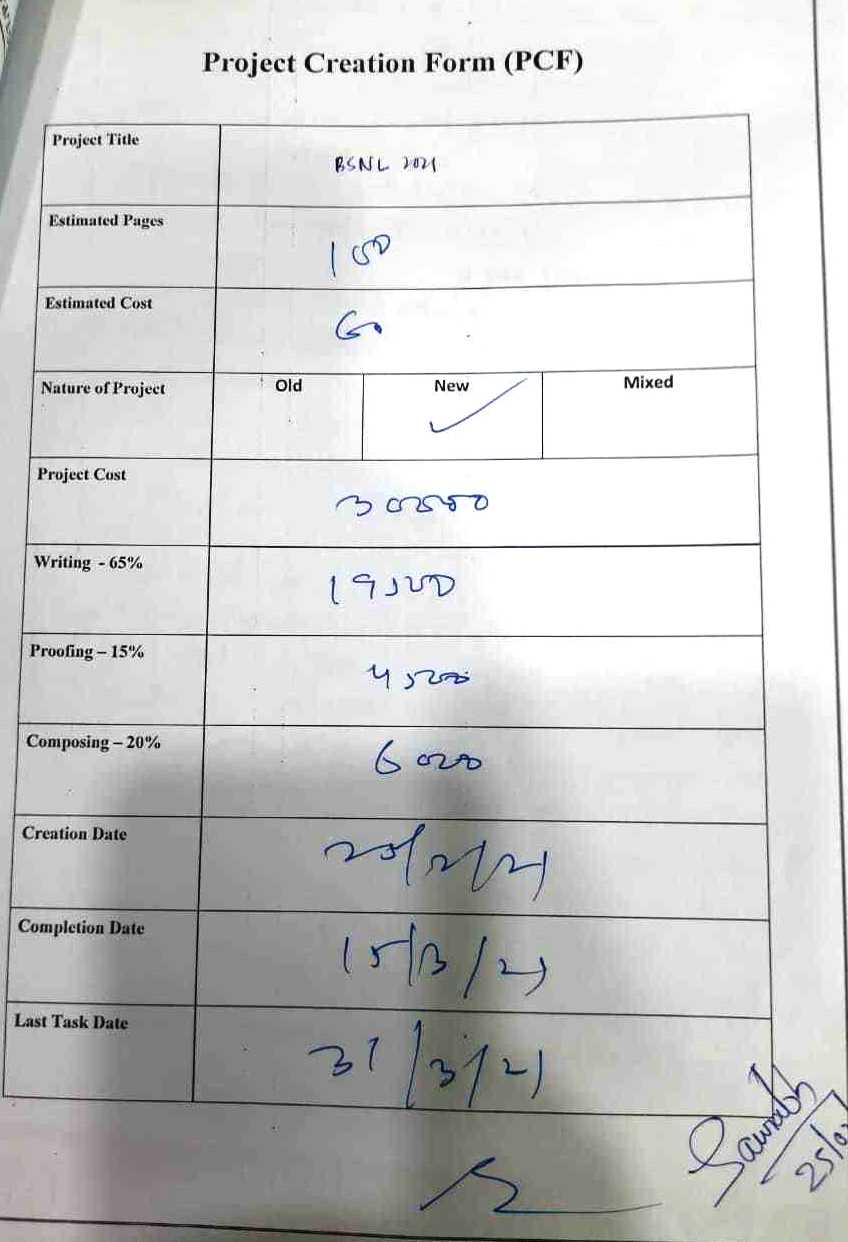 Project Creation Form (PCF)
Project Title
BSNL 2021
Estimated Pages
Estimated Cost
60
Nature of Project Old New Mixed
Project Cost
30000
Writing - 65%
19500
Proofing – 15%
4500
Composing – 20%
6000
Creation Date
25/2/21
Completion Date
15/3/21
Last Task Date
31/3/21
Saurabh
25/0